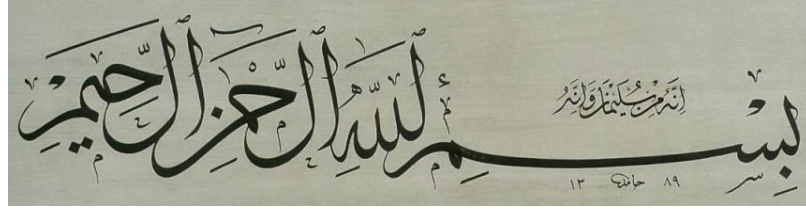 اِنَّهُ مِنْ سُلَيْمٰنَ وَاِنَّهُ
بِسْمِ اللّٰهِ الرَّحْمٰنِ الرَّحِيمِ
٨٩ حامد ١٣